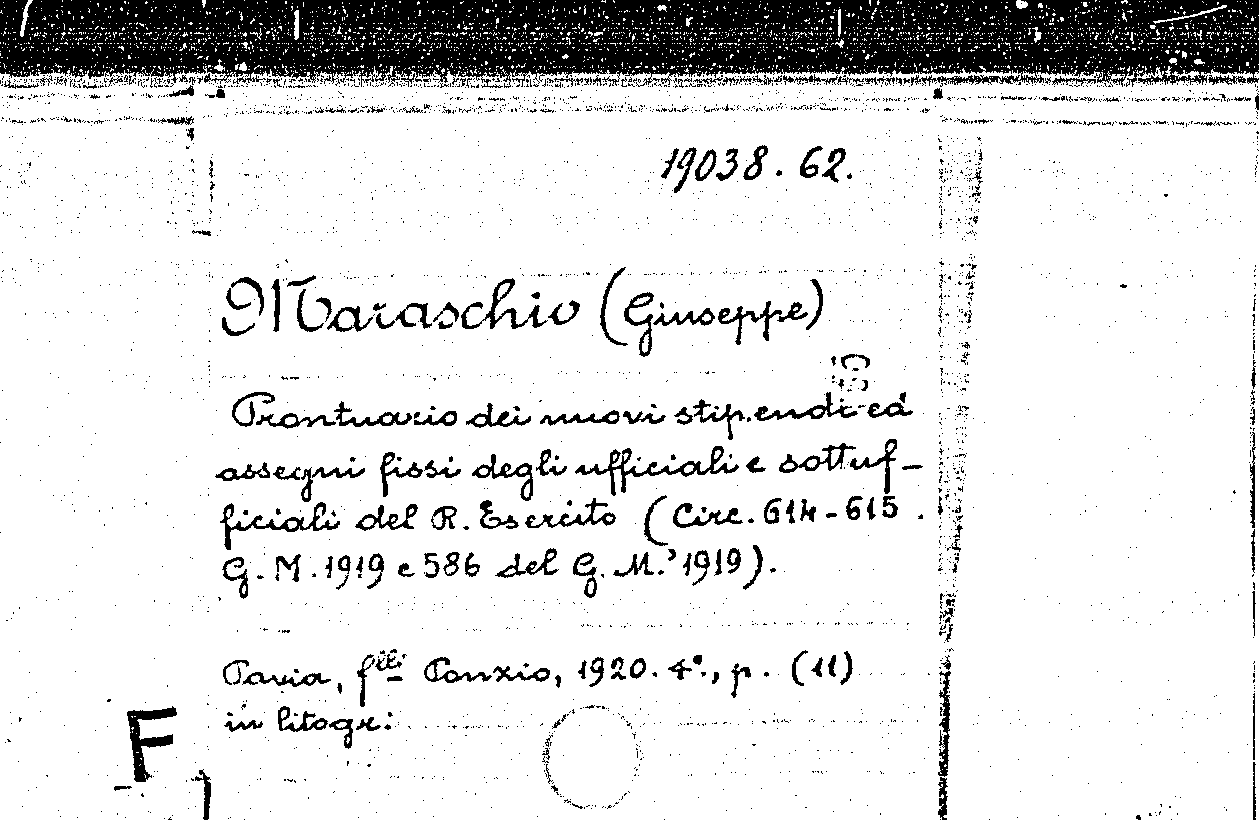 19038.62.
Maraschio (Giuseppe)
Prontuario dei nuovi stipendi ed
assegni fissi degli ufficiali e sottuf-
ficiali del R. Esercito (Circ. 614-615.
G. M. 1919 e 586 del G. M. 1919).
Pavia, f.lli Ponzio, 1920. 4°., p. (11)
in litogr:
F